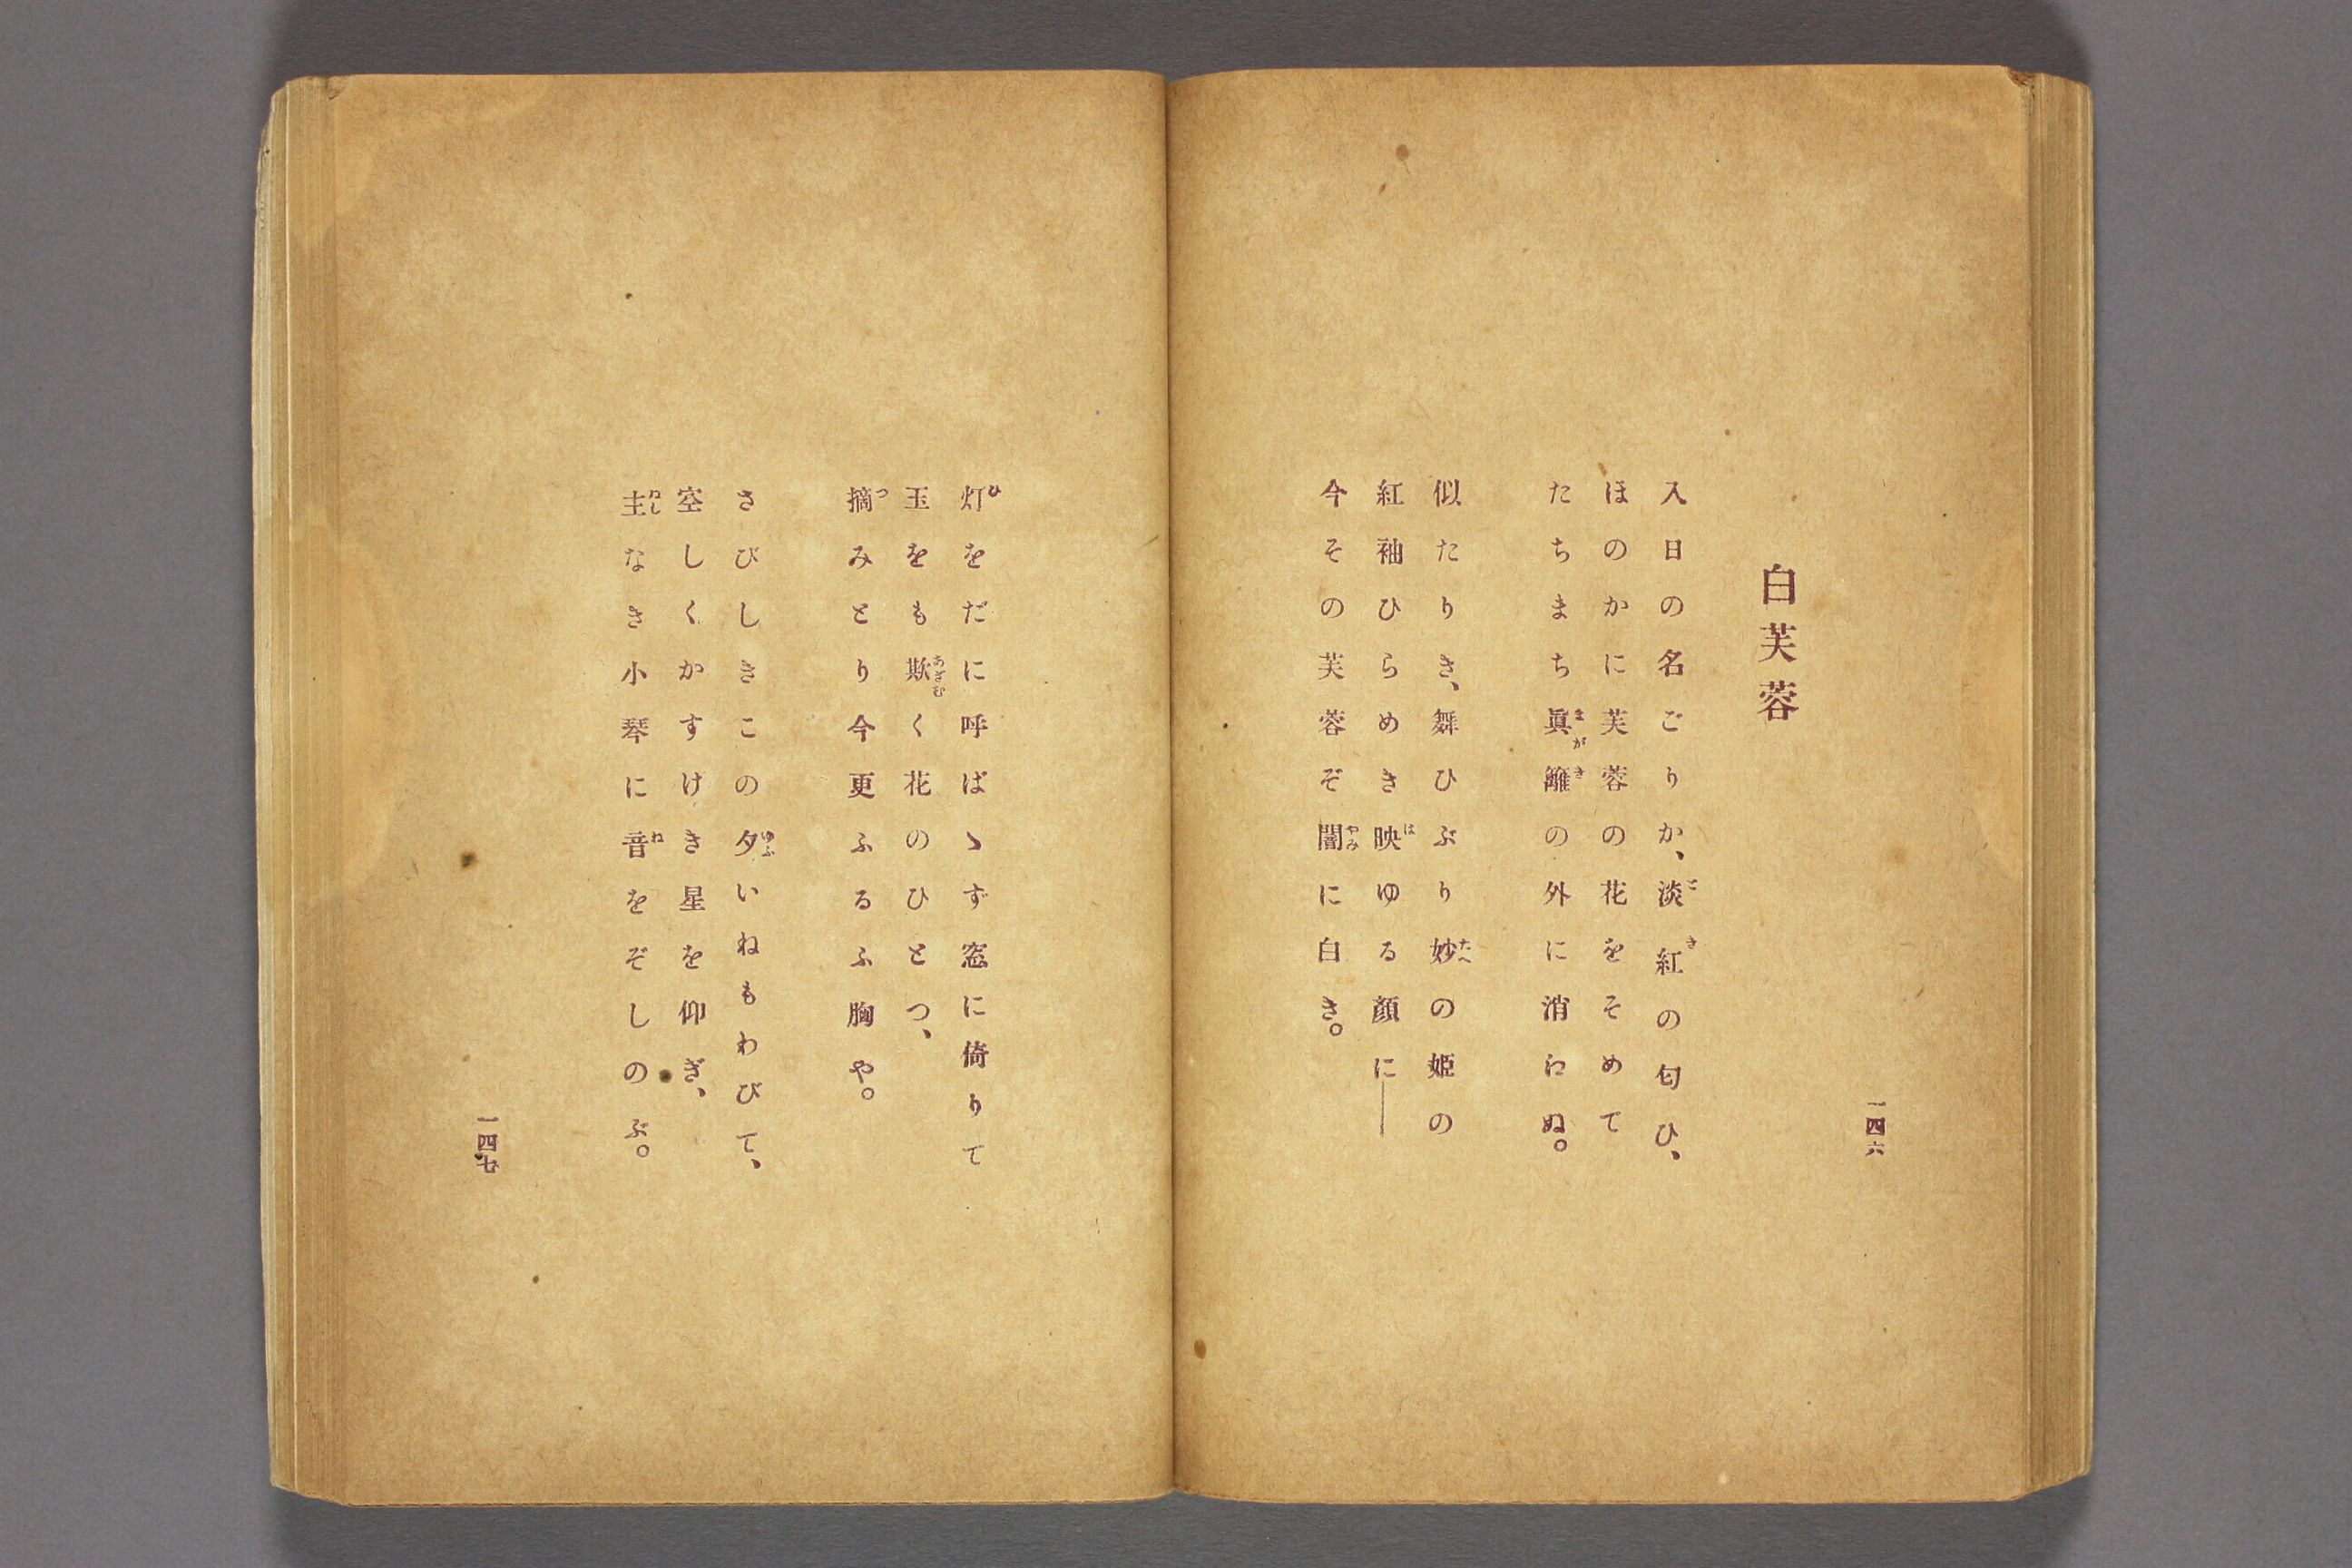 一四六
白芙蓉
入日の名ごりか、淡紅の匂ひ、
ほのかに芙蓉の花をそめて
たちまち眞籬の外に消にぬ。
似たりき、舞ひぶり妙の姫の
紅袖ひらめき映ゆる顏に──
今その芙蓉ぞ闇に白き。
灯をだに呼ばゝず窓に倚りて
玉をも欺く花のひとつ、
摘みとり今更ふるふ胸や。
さびしきこの夕いねもわびて、
空しくかすけき星を仰ぎ、
主なき小琴に音をぞしのぶ。
一四七